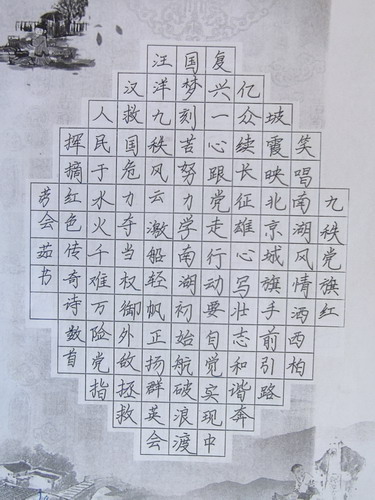 九秩党旗红
笑唱南湖风情洒西柏
坡霞映北京城旗手前引路
亿众续长征雄心写壮志和谐奔
复兴一心跟党走行动要自觉实现中
国梦刻苦努力学南湖初始航破浪渡
汪洋九秩风云激船轻帆正扬群英会
汉救国危力夺当权御外敌拯救
人民于水火千难万险党指
挥摘红色传奇诗数首
芳会茹书